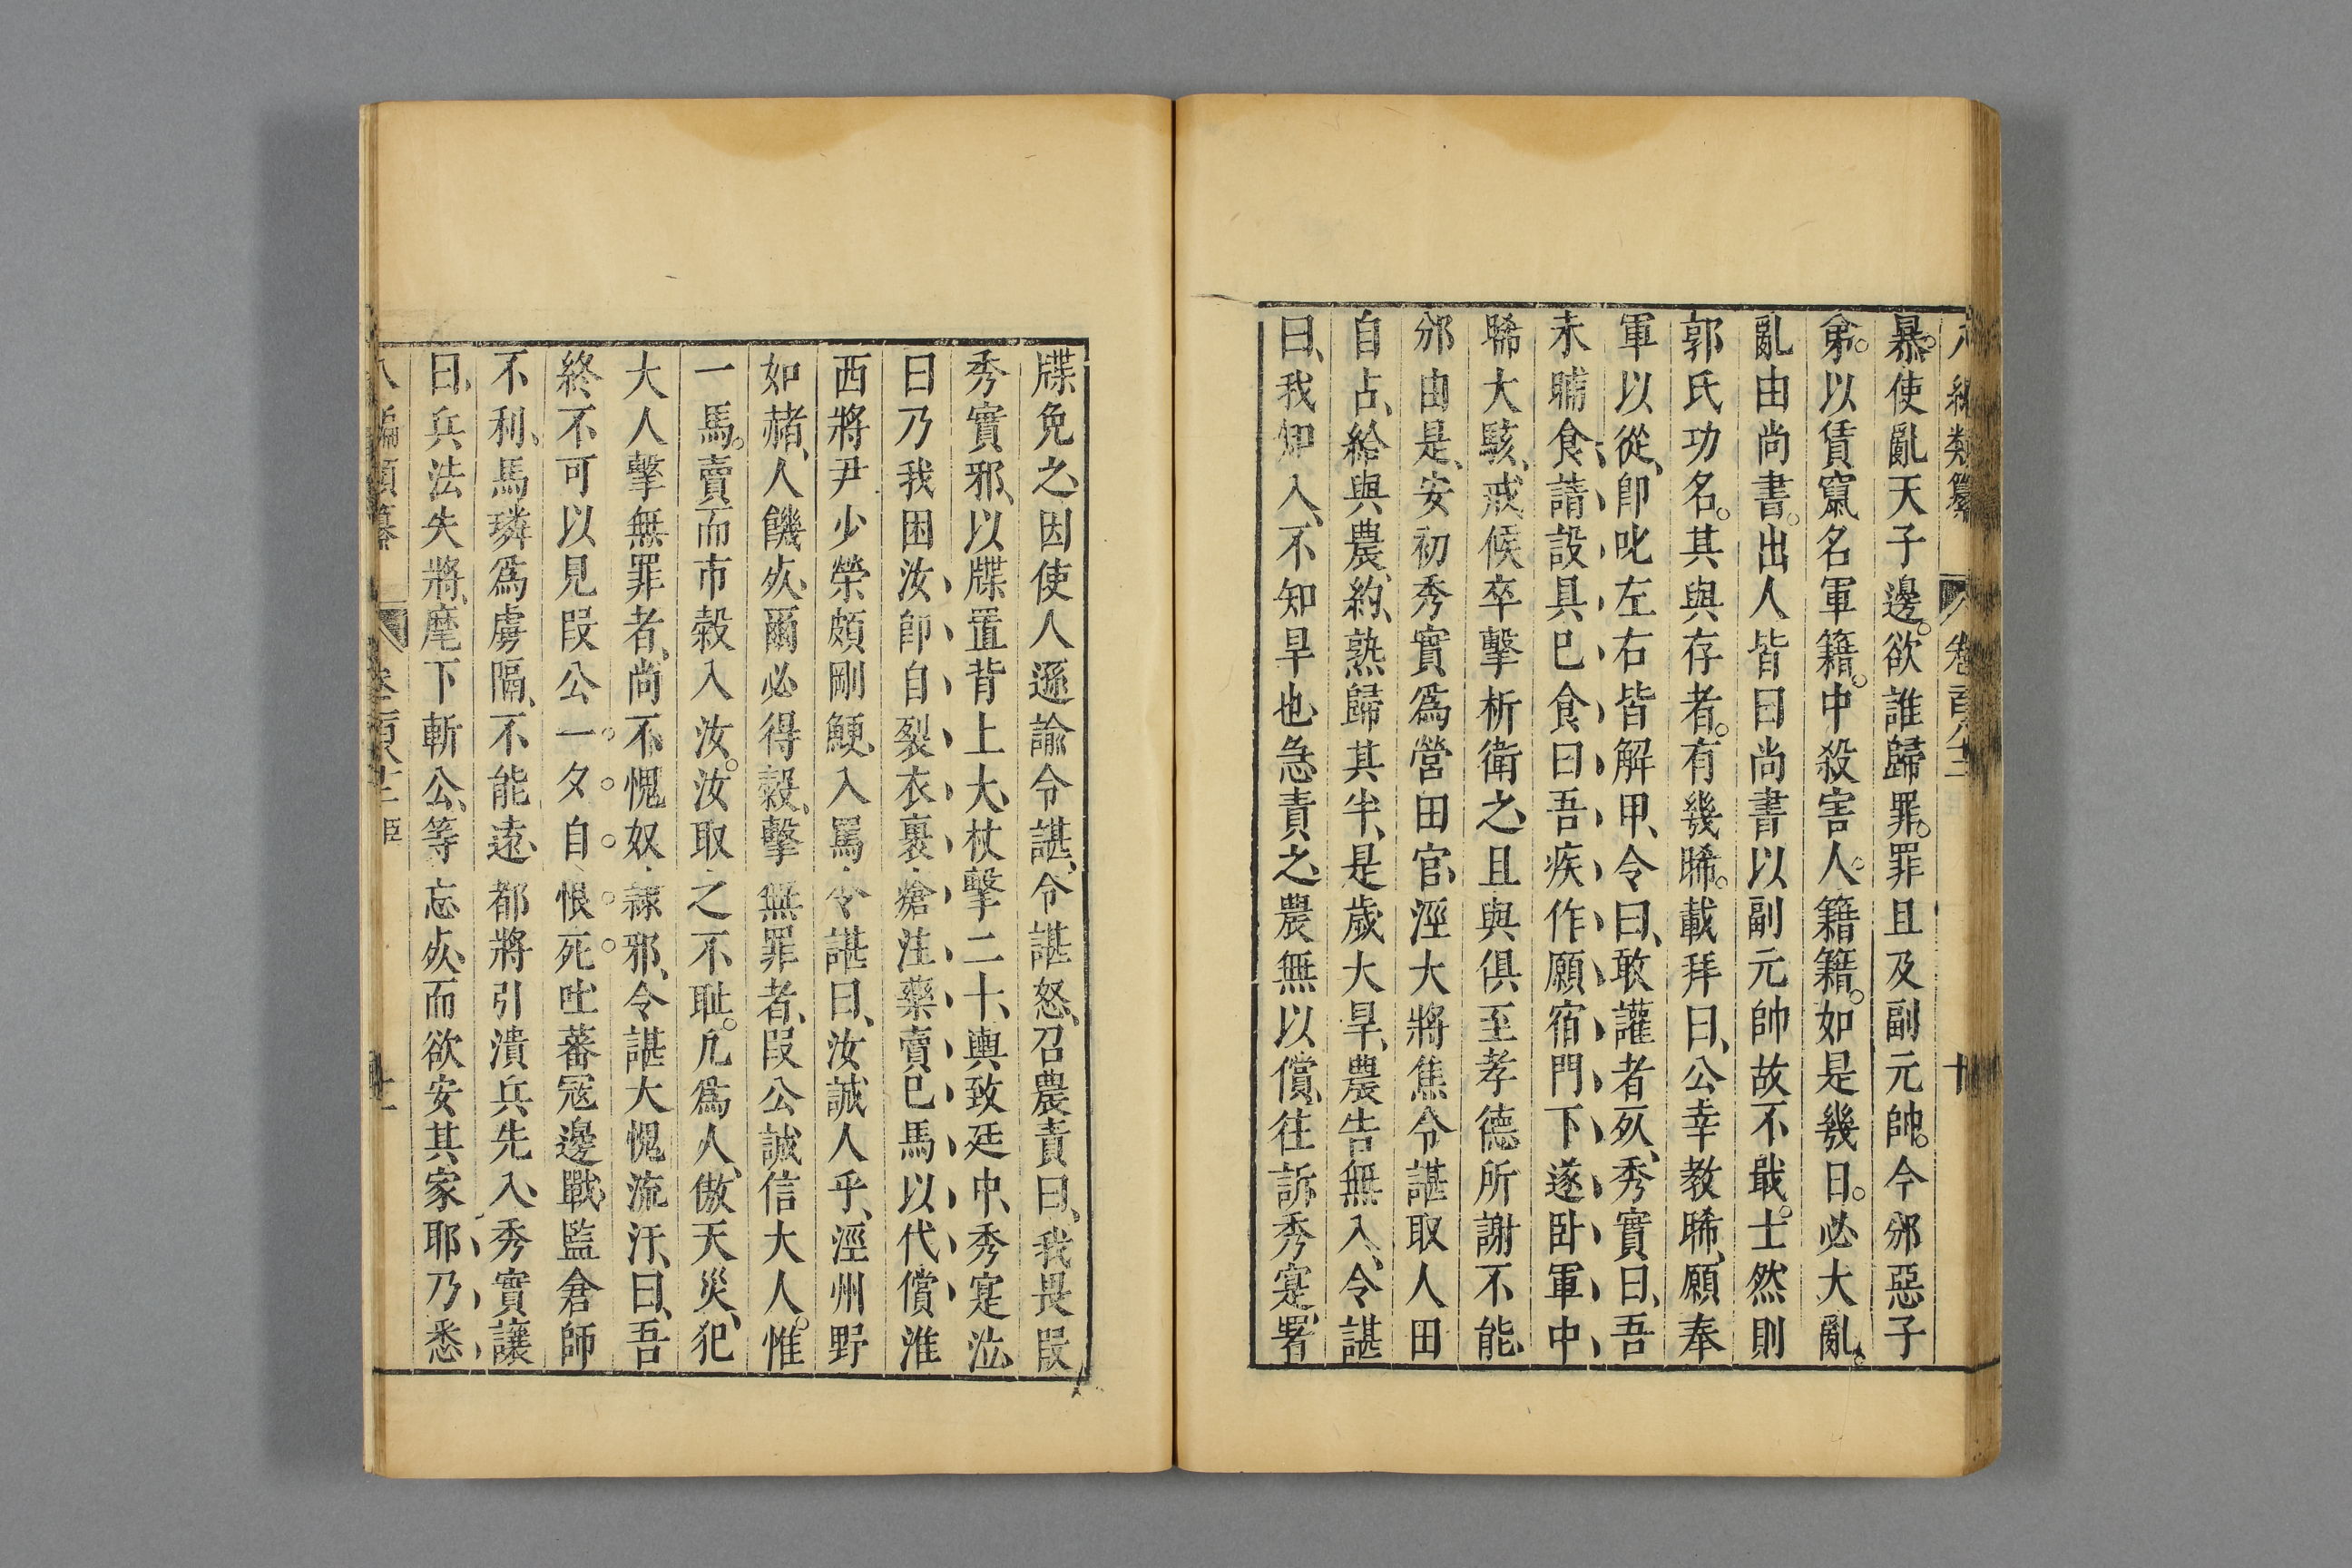 暴使亂天子邊欲誰歸罪罪且及副元帥今邠惡子
弟以賃竄名軍籍中殺害人籍籍如是幾日必大亂
亂由尚書出人皆曰尚書以副元帥故不戢士然則
郭氏功名其與存者有幾晞載拜曰公幸教晞願奉
軍以從卽叱左右皆解甲令曰敢讙者死秀實曰吾
未晡食請設具已食曰吾疾作願宿門下遂卧軍中
晞大駭戒候卒擊柝衛之且與俱至孝德所謝不能
邠由是安初秀實爲營田官涇大將焦令諶取人田
自占給與農約熟歸其半是歲大旱農告無入令諶
曰我知入不知旱也急責之農無以償往訴秀寔署
牒免之因使人遜諭令諶令諶怒召農責曰我畏段
秀實邪以牒置背上大杖擊二十輿致廷中秀寔泣
曰乃我困汝卽自裂衣裹瘡注藥賣已馬以代償淮
西將尹少榮頗剛鯁入罵令諶曰汝誠人乎涇州野
如赭人饑死爾必得穀擊無罪者段公誠信大人惟
一馬賣而市穀入汝汝取之不耻凢爲人傲天災犯
大人擊無罪者尚不愧奴隸邪令諶大愧流汗曰吾
終不可以見段公一夕自恨死吐蕃寇邊戰監倉師
不利馬璘爲虜隔不能遠都將引潰兵先入秀實讓
曰兵法失將麾下斬公等忘死而欲安其家耶乃悉